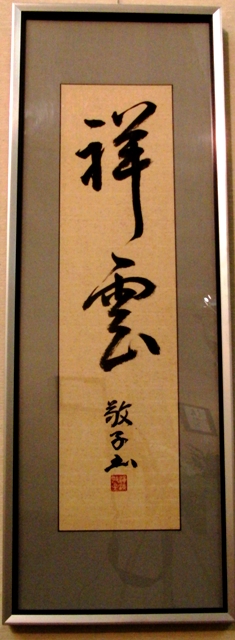 祥雲
敬子书